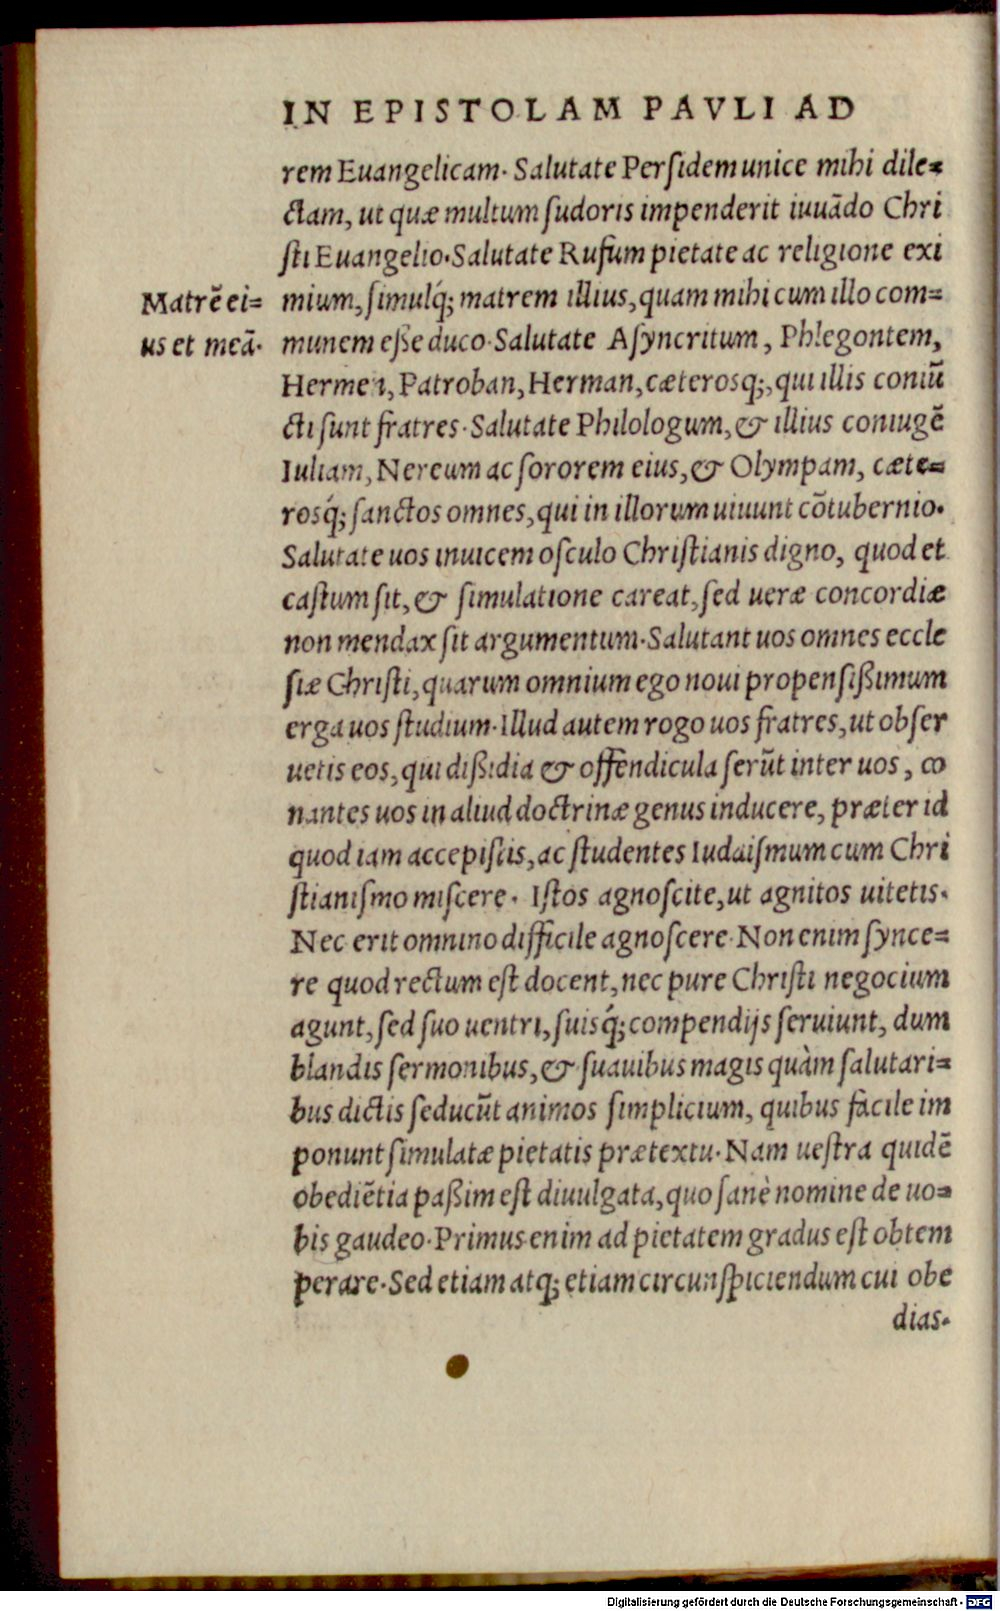 IN EPISTOLAM PAVLI AD
rem Euangelicam. Salutate Persidem unice mihi dile=
ctam, ut quæ multum sudoris impenderit iuuādo Chri
sti Euangelio. Salutate Rufum pietate ac religione exi
Matrē ei=
us et meā.
mium, simulq́; matrem illius, quam mihi cum illo com=
munem eße duco. Salutate Asyncritum, Phlegontem,
Hermen, Patroban, Herman, cæterosq;, qui illis coniū
cti sunt fratres. Salutate Philologum, & illius coniugē
Iuliam, Nereum ac sororem eius, & Olympam, cæte=
rosq́; sanctos omnes, qui in illorum uiuunt cōtubernio.
Salutate uos inuicem osculo Christianis digno, quod et
castum sit, & simulatione careat, sed ueræ concordiæ
non mendax sit argumentum. Salutant uos omnes eccle
siæ Christi, quarum omnium ego noui propensißimum
erga uos studium. Illud autem rogo uos fratres, ut obser
uetis eos, qui dißidia & offendicula serūt inter uos, co
nantes uos in aliud doctrinæ genus inducere, præter id
quod iam accepistis, ac studentes Iudaismum cum Chri
stianismo miscere. Istos agnoscite, ut agnitos uitetis.
Nec erit omnino difficile agnoscere. Non enim synce=
re quod rectum est docent, nec pure Christi negocium
agunt, sed suo uentri, suisq́; compendijs seruiunt, dum
blandis sermonibus, & suauibus magis quàm salutari=
bus dictis seducūt animos simplicium, quibus facile im
ponunt simulatæ pietatis prætextu. Nam uestra quidē
obediētia paßim est diuulgata, quo sanè nomine de uo=
bis gaudeo. Primus enim ad pietatem gradus est obtem
perare. Sed etiam atq; etiam circunspiciendum cui obe
dias.
Digitalisierung gefördert durch die Deutsche Forschungsgemeinschaft - DFG